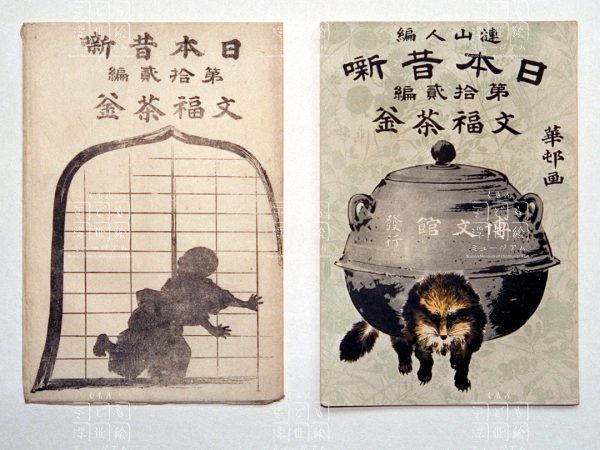 日本昔噺
第拾貳編
文福茶釜
漣山人編
日本昔噺
第拾貳編
文福茶釜
華邨画
博文館
發行
ミュージアム